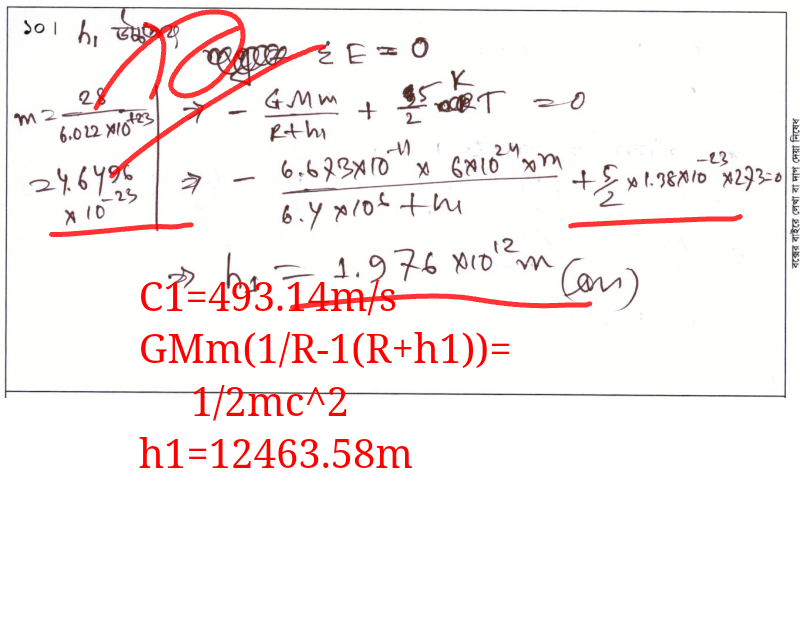 ১০। h₁ উচ্চতায়
Σ E = 0
m = 28 / 6.022×10⁺²³
= 4.6496 × 10⁻²³
⇒ - GMm / R+h₁ + 5/2 KT = 0
⇒ - 6.673×10⁻¹¹ × 6×10²⁴ × m / 6.4×10⁶ + h₁ + 5/2 × 1.38×10⁻²³ × 273 = 0
⇒ h₁ = 1.976 × 10¹² m (ans)
C1=493.14m/s
GMm(1/R-1(R+h1))=
1/2mc^2
h1=12463.58m
বক্সের বাইরে লেখা বা দাগ দেয়া নিষেধ